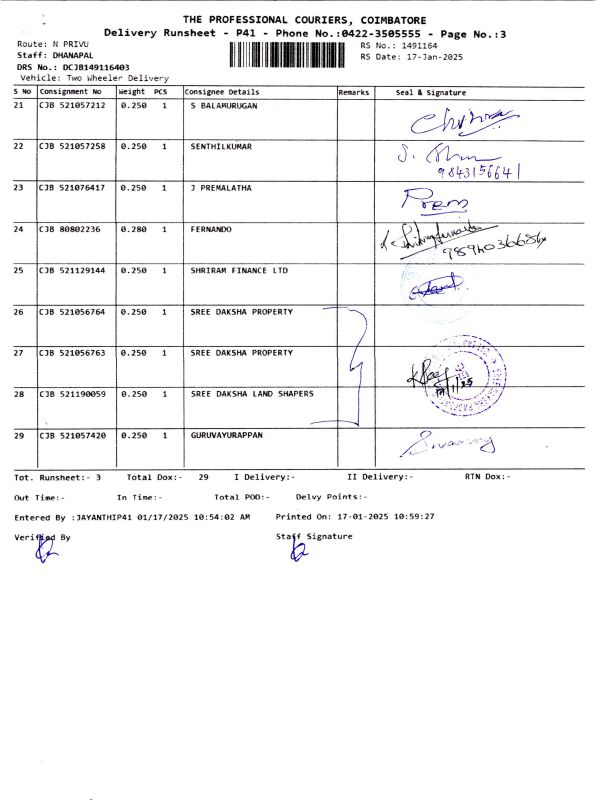 THE PROFESSIONAL COURIERS, COIMBATORE
Delivery Runsheet - P41 - Phone No.:0422-3505555 - Page No.:3
Route: N PRIVU RS No.: 1491164
Staff: DHANAPAL RS Date: 17-Jan-2025
DRS No.: DCJB149116403
Vehicle: Two Wheeler Delivery
S No Consignment No Weight PCS Consignee Details Remarks Seal & Signature
21 CJB 521057212 0.250 1 S BALAMURUGAN
22 CJB 521057258 0.250 1 SENTHILKUMAR
9843156641
23 CJB 521076417 0.250 1 J PREMALATHA Prem
24 CJB 80802236 0.280 1 FERNANDO
25 CJB 521129144 0.250 1 SHRIRAM FINANCE LTD
26 CJB 521056764 0.250 1 SREE DAKSHA PROPERTY
27 CJB 521056763 0.250 1 SREE DAKSHA PROPERTY
28 CJB 521190059 0.250 1 SREE DAKSHA LAND SHAPERS
29 CJB 521057420 0.250 1 GURUVAYURAPPAN
Tot. Runsheet:- 3 Total Dox:- 29 I Delivery:- II Delivery:- RTN Dox:-
Out Time:- In Time:- Total POD:- Delvy Points:-
Entered By :JAYANTHIP41 01/17/2025 10:54:02 AM Printed On: 17-01-2025 10:59:27
Verified By Staff Signature